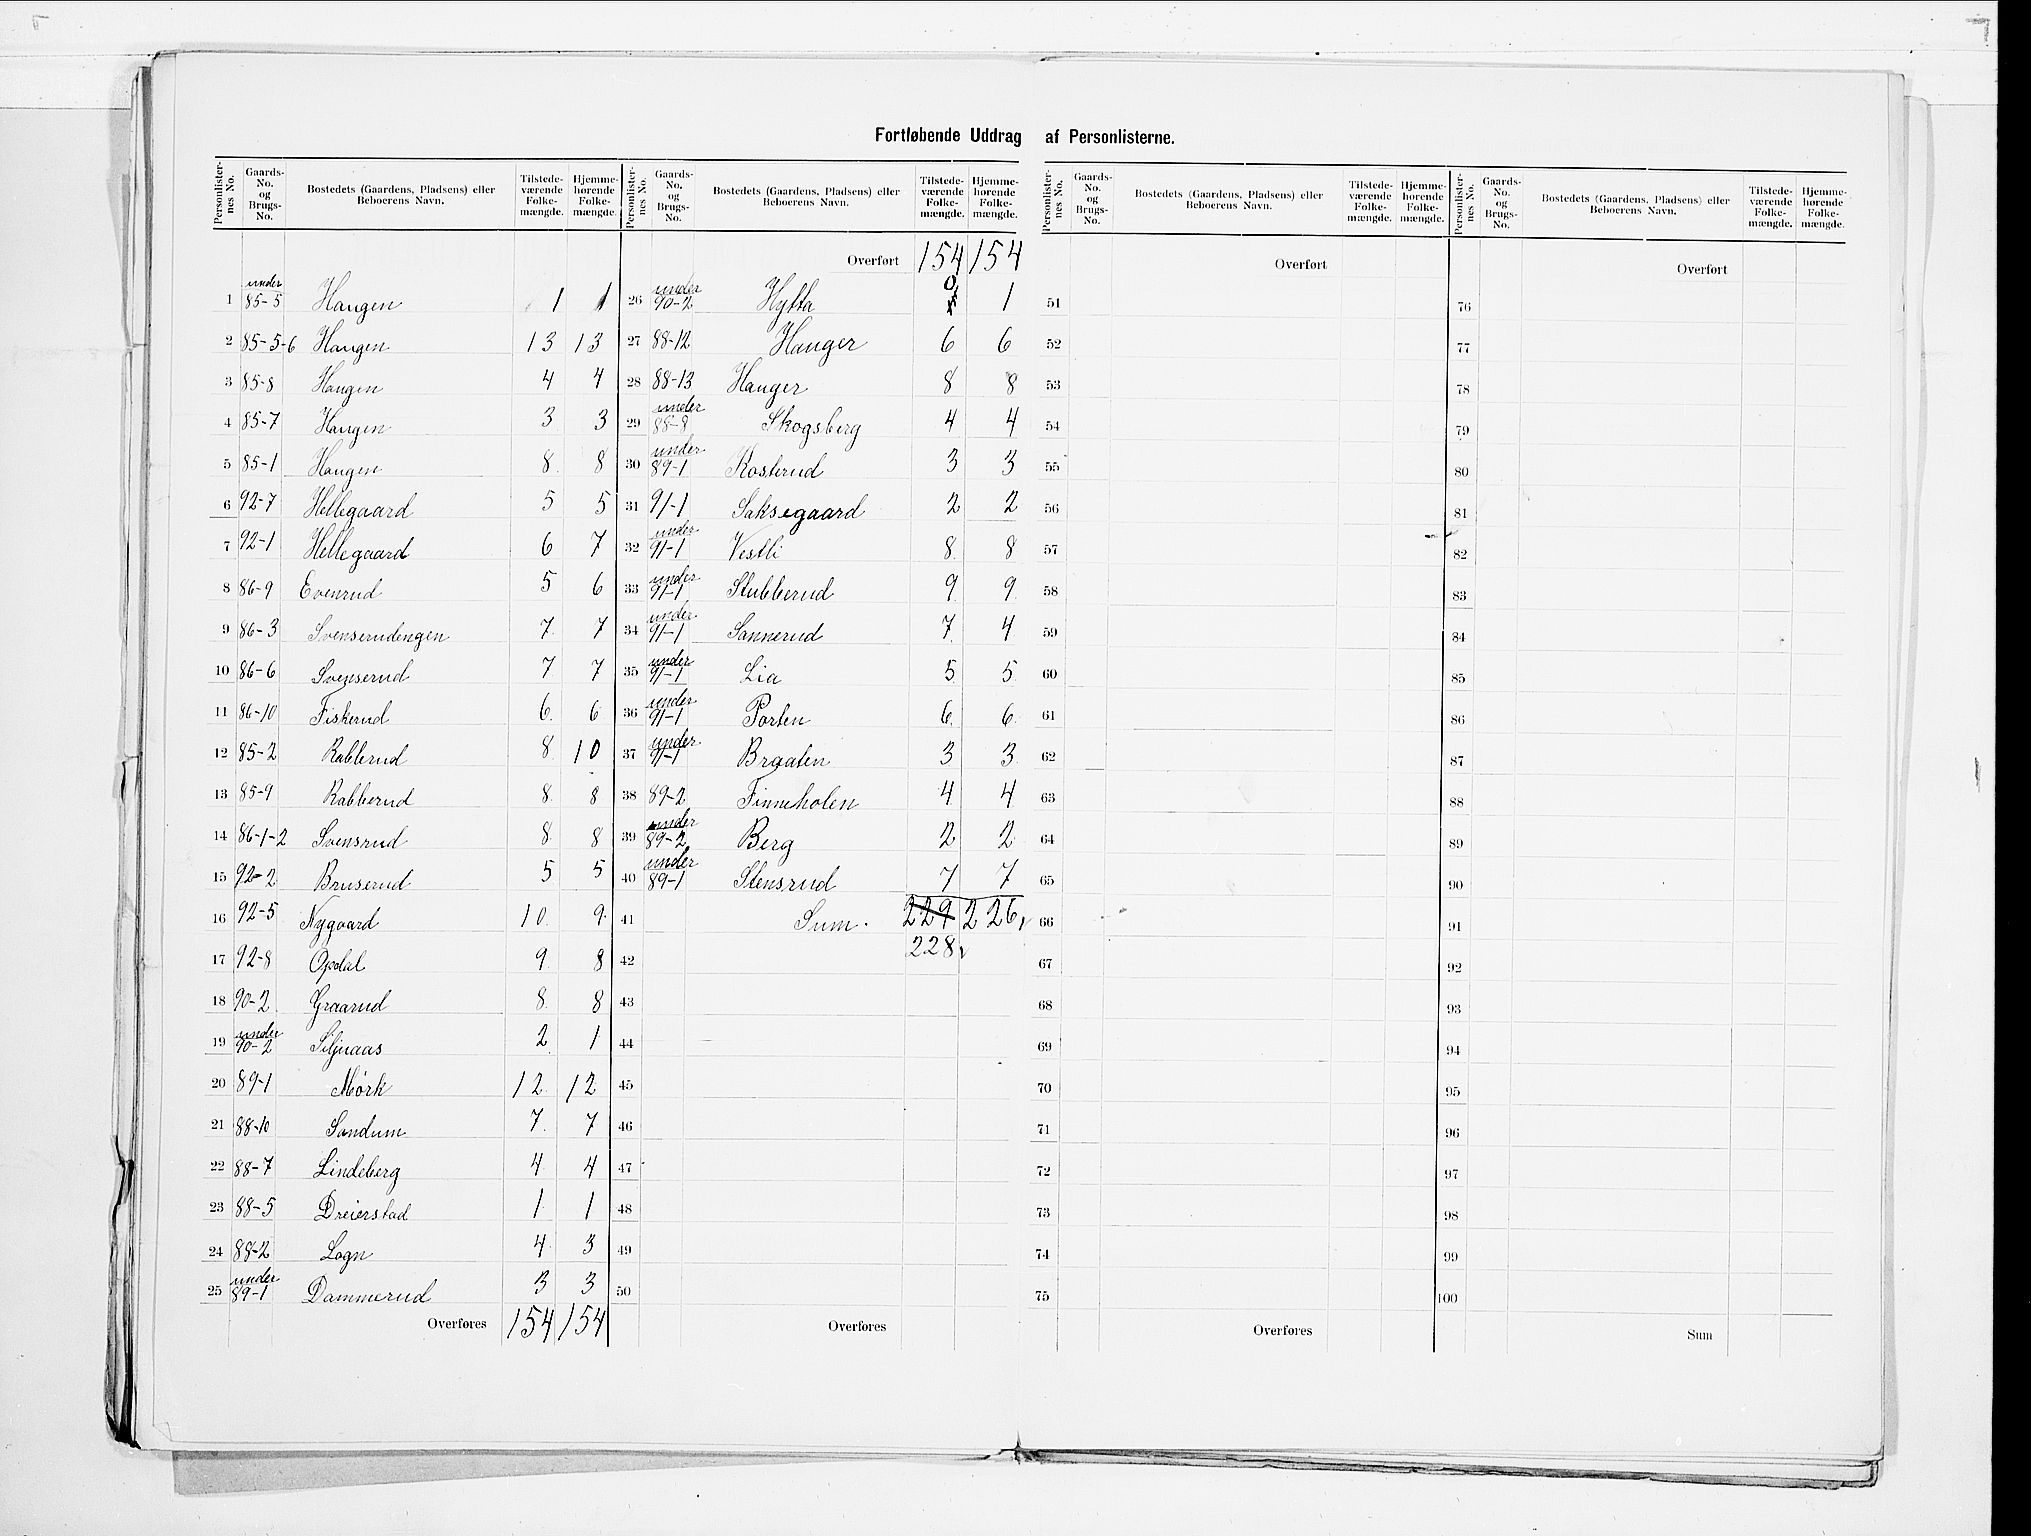 Fortløbende Uddrag af Personlisterne.
Personlister-nes No. | Gaards-No. og Brugs-No. | Bostedets (Gaardens, Pladsens) eller Beboerens Navn. | Tilstede-værende Folke-mængde. | Hjemme-hørende Folke-mængde.
1 under 85-5 Haugen 1 1
2 85-5-6 Haugen 13 13
3 85-8 Haugen 4 4
4 85-7 Haugen 3 3
5 85-1 Haugen 8 8
6 92-7 Hellegaard 5 5
7 92-1 Hellegaard 6 7
8 86-9 Evenrud 5 6
9 86-3 Svenserudengen 7 7
10 86-6 Svenserud 7 7
11 86-10 Fiskerud 6 6
12 85-2 Rabberud 8 10
13 85-9 Rabberud 8 8
14 86-1-2 Svensrud 8 8
15 92-2 Bruserud 5 5
16 92-5 Nygaard 10 9
17 92-8 Opdal 9 8
18 90-2 Graarud 8 8
19 under 90-2 Siljuaas 2 1
20 89-1 Mørk 12 12
21 88-10 Sandum 7 7
22 88-7 Lindeberg 4 4
23 88-5 Dreierstad 1 1
24 88-2 Logn 4 3
25 under 89-1 Dammerud 3 3
Overføres 154 154
Personlister-nes No. | Gaards-No. og Brugs-No. | Bostedets (Gaardens, Pladsens) eller Beboerens Navn. | Tilstede-værende Folke-mængde. | Hjemme-hørende Folke-mængde.
Overført 154 154
26 under 90-2 Hytta 0 1
27 88-12 Hauger 6 6
28 88-13 Hauger 8 8
29 under 88-8 Skogsberg 4 4
30 under 89-1 Kosterud 3 3
31 91-1 Saksegaard 2 2
32 under 91-1 Vestli 8 8
33 under 91-1 Stubberud 9 9
34 under 91-1 Sannerud 7 4
35 under 91-1 Lia 5 5
36 under 91-1 Porten 6 6
37 under 91-1 Braaten 3 3
38 89-2 Finneholen 4 4
39 under 89-2 Berg 2 2
40 under 89-1 Stensrud 7 7
41 Sum. 229 226
42 228
43
44
45
46
47
48
49
50
Overføres
Personlister-nes No. | Gaards-No. og Brugs-No. | Bostedets (Gaardens, Pladsens) eller Beboerens Navn. | Tilstede-værende Folke-mængde. | Hjemme-hørende Folke-mængde.
Overført
51
52
53
54
55
56
57
58
59
60
61
62
63
64
65
66
67
68
69
70
71
72
73
74
75
Overføres
Personlister-nes No. | Gaards-No. og Brugs-No. | Bostedets (Gaardens, Pladsens) eller Beboerens Navn. | Tilstede-værende Folke-mængde. | Hjemme-hørende Folke-mængde.
Overført
76
77
78
79
80
81
82
83
84
85
86
87
88
89
90
91
92
93
94
95
96
97
98
99
100
Sum